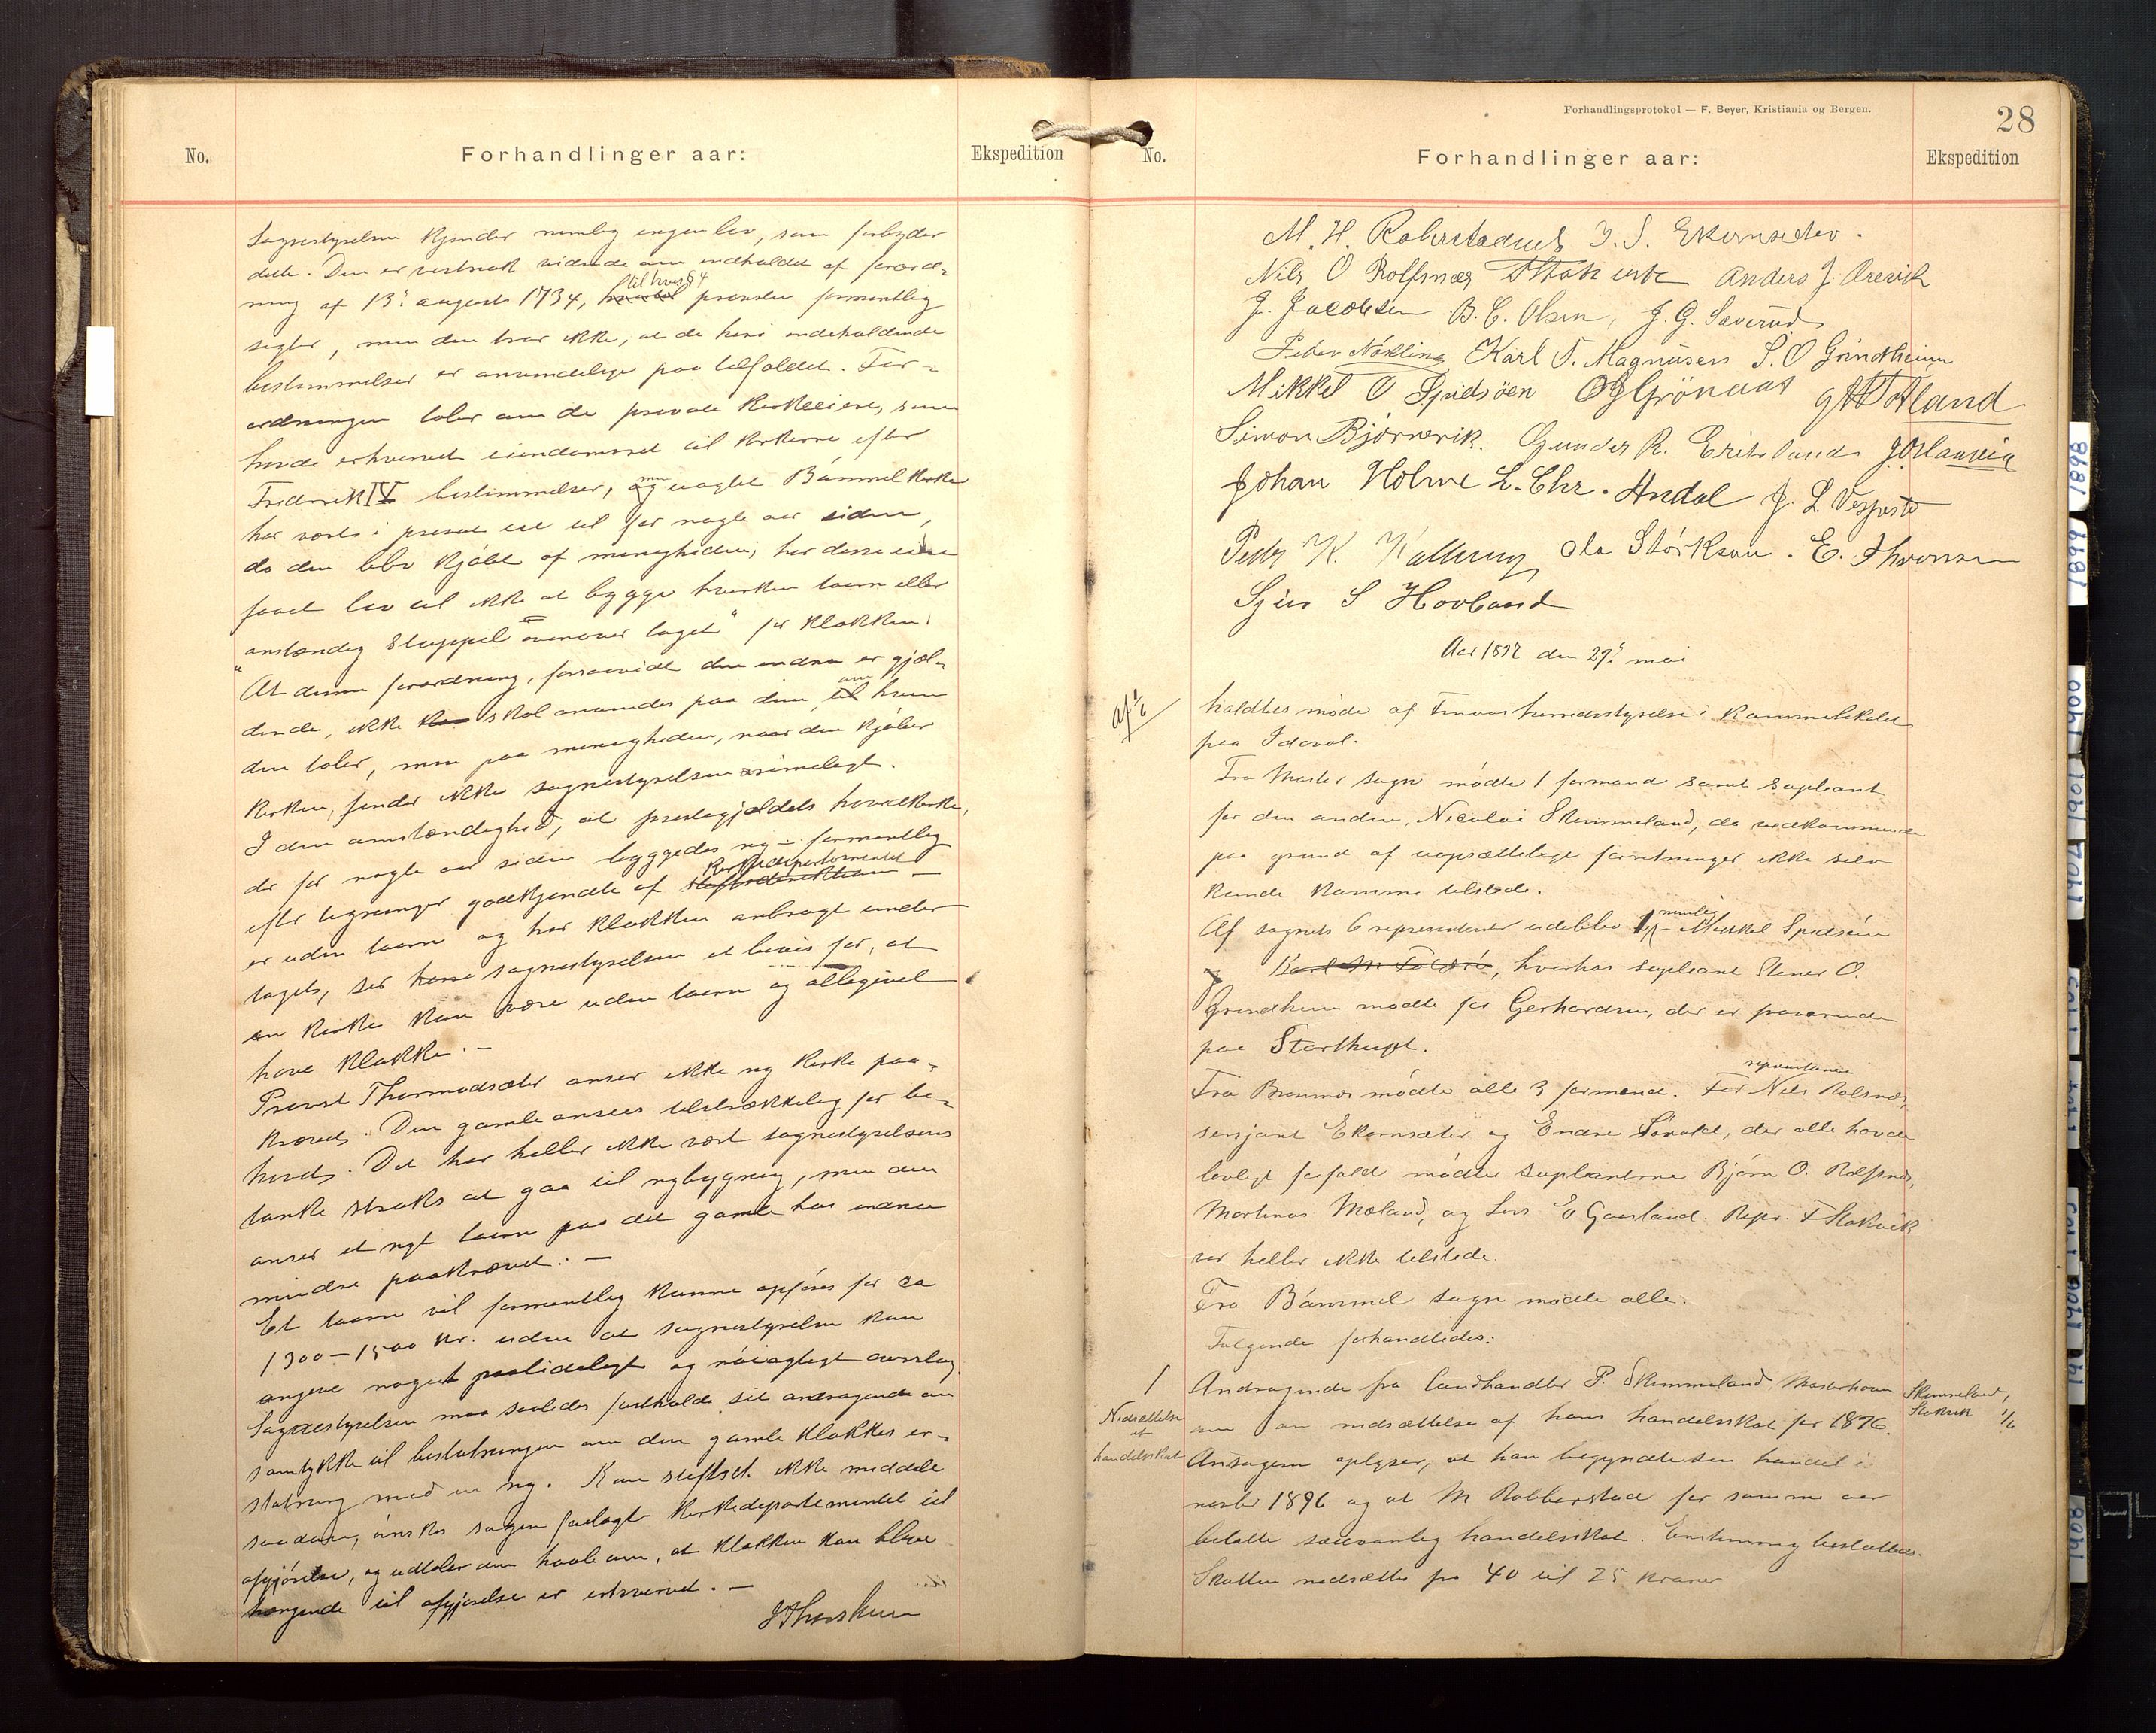 No.
Forhandlinger aar:
Ekspedition
Sognestyrelsen kjender nemlig ingen lov, som forbyder
dette. Den er vistnok vidende om indholdet af forord-
ning af 13de august 1734, til hvis § 4 provsten formentlig
sigter, men den tror ikke, at de heri indeholdende
bestemmelser er anvendelige paa tilfældet. For-
ordningen taler om de private kirkeeiere, som
havde erhvervet eiendomsret til kirkerne efter
Frederik IV bestemmelser, men uagtet Bømmel kirke
har været i privat eie til for nogle aar siden,
da den blev kjøbt af menigheden, har disse eiere
faaet lov til ikke at bygge hverken taarn eller
"anstændig Stappel ovenover taget" for klokken.
At denne forordning, forsaavidt den endnu er gjæl-
dende, ikke skal anvendes paa dem, om hvem
den taler, men paa menigheden, naar den kjøber
kirken, finder ikke sognestyrelsen rimeligt.
I den omstændighed, at prestegjældets hovedkirke,
der for nogle aar siden byggedes ny – formentlig
efter tegninger godkjendte af Kirkedepartementet –
er uden taarn og har klokken anbragt under
taget, ser sognestyrelsen et bevis for, at
en kirke kan være uden taarn og alligevel
have klokke. –
Provst Thormodsæter anser ikke ny kirke paa-
krævet. Den gamle ansees tilstrækkelig for be-
hovet. Det har heller ikke vært sognestyrelsens
tanke straks at gaa til nybygning, men den
anser et nyt taarn paa det gamle hus endnu
mindre paakrævet. –
Et taarn vil formentlig kunne opføres for ca
1300 – 1500 kr. uden at sognestyrelsen kan
angive noget paalideligt og nøiagtigt overslag.
Sognestyrelsen maa saaledes fastholde sit andragende om
samtykke til beslutningen om den gamle klokkes er-
statning med en ny. Kan stiftsd. ikke meddele
saadant, ønskes sagen forelagt Kirkedepartementet til
afgjørelse, og udtaler den haab om, at klokken kan blive
hængende til afgjørelse er erhvervet. –
Forhandlingsprotokol — F. Beyer, Kristiania og Bergen.
28
No.
Forhandlinger aar:
Ekspedition
M. H. Robberstadvet J. S. Ekernsæter.
Nils O Rolfsnæs Anders J. Ørevik
J. Jacobsen B. C. Olsen, J. G. Sæverud
Peter Nökling Karl T. Magnusen S. O Grindheim
Mikkel O Spidsöen O G Grönaas Totland
Simon Björnevik. Gunder R. Eriksland
Johan Holme L. Chr. Andal J. L. Vespestd
Peder K. Kallevag Ola Störkson. E. Thorensen
Sjur S Hovland
Aar 1897 den 29de mai
holdtes møde af Finnaas herredsstyrelse i kommunelokalet
paa Idavol.
Fra Moster sogn mødte 1 formand samt supleant
for den anden, Nicolai Skimmeland, da vedkommende
paa grund af uopsættelige forretninger ikke selv
kunde komme tilstede.
Af sognets 6 repræsentanter udeblev 1, nemlig Mikkel Spidsöen
, hvorhos supleant Stener O.
Grindheim mødte for Gerhardsen, der er fraværende
paa Storthinget.
Fra Bremnes mødte alle 3 formænd. For repræsentanterne Nils Rolsnæs,
sersjant Ekornsæter og Endre, der alle havde
lovligt forfald mødte supleanterne Bjørn O. Rolfsnæs,
Martinus Mæland, og Lars E Gaasland. Repr. T Stokvik
var heller ikke tilstede.
Fra Bømmel sogn mødte alle.
Følgende forhandledes:
1
Nedsættelse
af
handelsskat
Andragende fra landhandler P. Skimmeland, Mosterhavn
om nedsættelse af hans handelsskat for 1896.
Ansøgeren oplyser, at han begyndte sin handel i
1896 og at M Robberstad for samme aar
betalte sædvanlig handelsskat. Enstemmig besluttet:
Skatten nedsættes fra 40 til 25 kroner
Skimmeland,
Stokvik 1/6
1898
1899
1900
1901
1902
1903
1904
1905
1906
1908